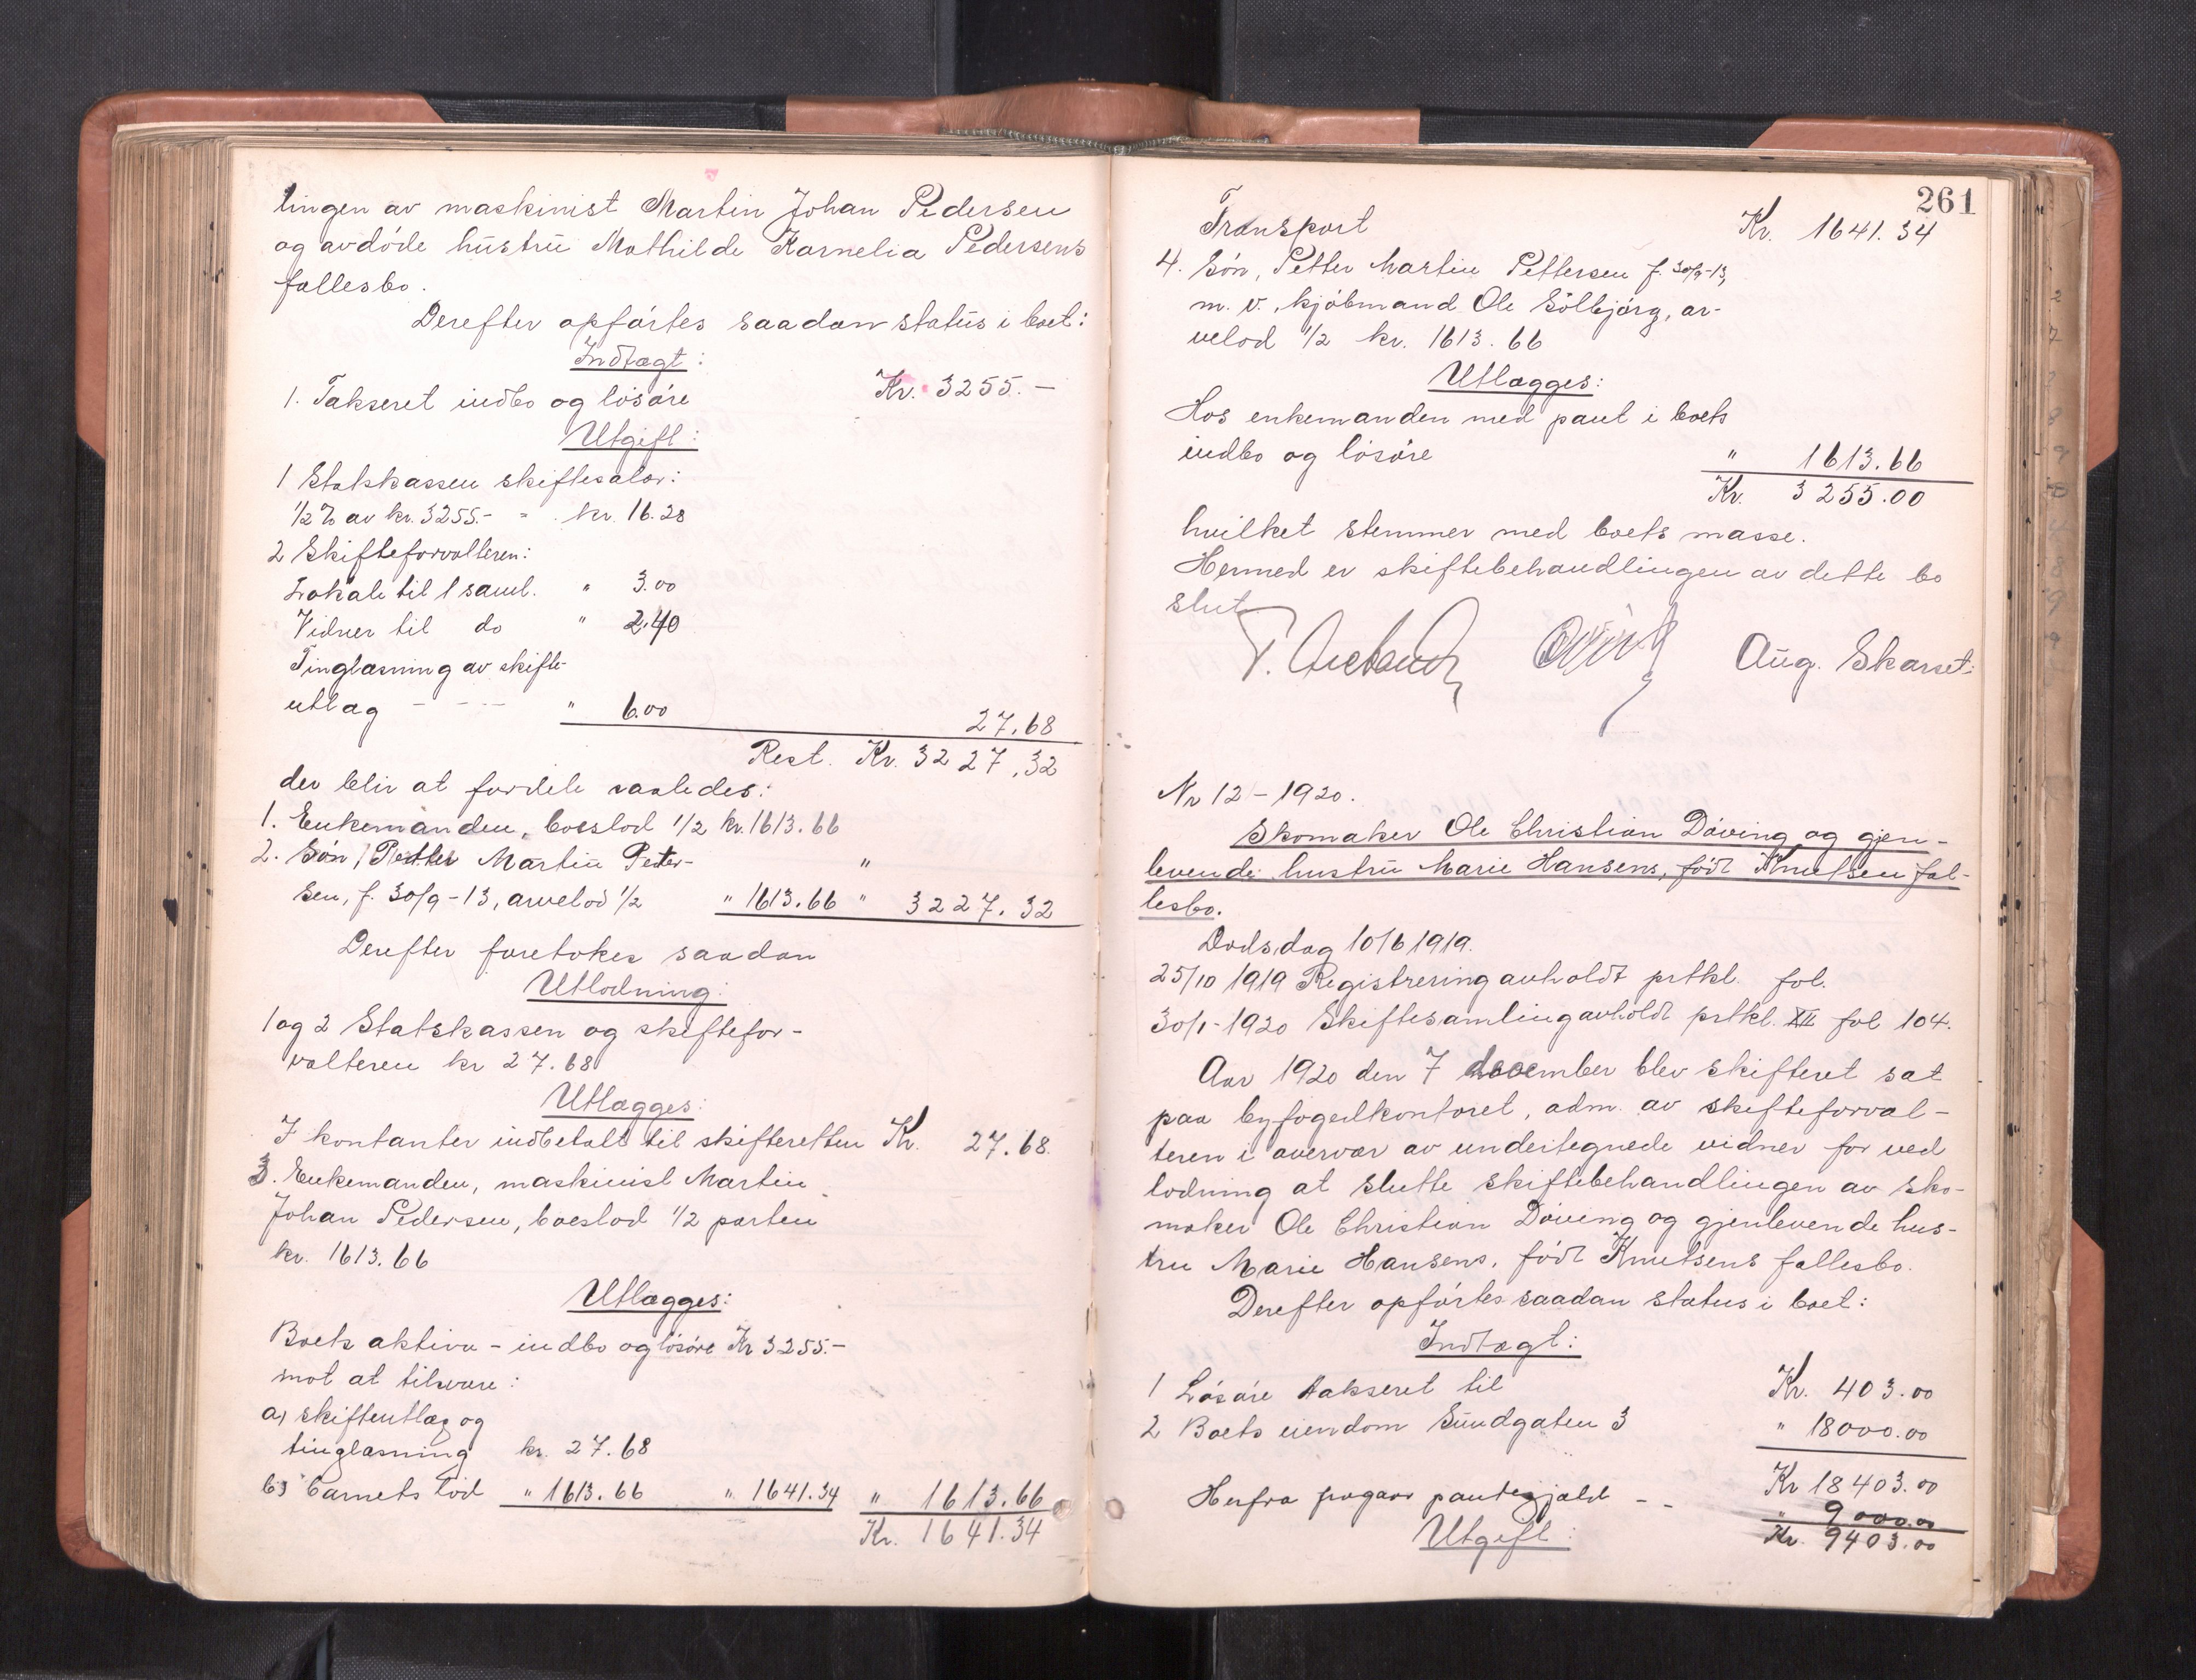 lingen av maskinist Martin Johan Pedersen
og avdøde hustru Mathilde Karnelia Pedersens
fællesbo.
Derefter opførtes saadan status i boet:
Indtægt:
1. Takseret indbo og løsøre Kr. 3255.-
Utgift:
1 Statskassen skiftesalær:
1/2 % av kr. 3255.- = kr. 16.28
2 Skifteforvalteren:
Lokale til 1 saml. " 3.00
Vidner til do " 2.40
Tinglæsning av skifte-
utlæg - - - - " 6.00 27.68
Rest. Kr. 3227,32
der blir at fordele saaledes:
1. Enkemanden, boeslod 1/2 kr. 1613.66
2. Søn, Petter Martin Peter- "
sen, f. 30/9-13, arvelod 1/2 " 1613.66 " 3227.32
Derefter foretokes saadan
Utlodning:
1 og 2 Statskassen og skiftefor-
valteren kr 27.68
Utlægges:
I kontanter indbetalt til skifteretten Kr. 27.68.
3. Enkemanden, maskinist Martin
Johan Pedersen, boeslod 1/2 parten
kr. 1613.66
Utlægges:
Boets aktiva - indbo og løsøre Kr 3255.-
mot at tilsvare:
a) skifteutlæg og
tinglæsning kr. 27.68
b) barnets lod " 1613.66 " 1641.34 " 1613.66
Kr. 1641.34
261
Transport Kr. 1641.34
4. Søn, Petter Martin Pettersen f. 30/9-13,
m. v. kjøbmand Ole Sølbjørg, ar-
velod 1/2 kr. 1613.66
Utlægges:
Hos enkemanden med pant i boets
indbo og løsøre " 1613.66
Kr. 3255.00
hvilket stemmer med boets masse.
Hermed er skiftebehandlingen av dette bo
slut
Aug. Skarset.
Nr 12 - 1920.
Skomaker Ole Christian Døving og gjen-
levende hustru Marie Hansens, født Knutsen fæl-
lesbo.
Dødsdag 10/6 1919.
25/10 1919 Registrering avholdt prtkl. fol.
30/1-1920 Skiftesamling avholdt prtkl. XII fol 104.
Aar 1920 den 7 december blev skifteret sat
paa byfogedkontoret, adm. av skifteforval-
teren i overvær av undertegnede vidner for ved
lodning at slutte skiftebehandlingen av sko-
maker Ole Christian Døving og gjenlevende hus-
tru Marie Hansens, født Knutsens fællesbo.
Derefter opførtes saadan status i boet:
Indtægt:
1 Løsøre takseret til Kr. 403.00
2 Boets eiendom Sundgaten 3 " 18000.00
Kr 18403.00
Herfra fragaar pantegjæld - - " 9000.00
Utgift: Kr. 9403.00